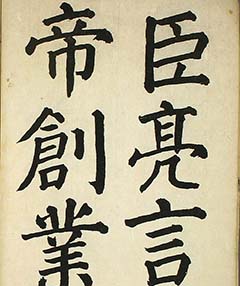 臣亮言
帝創業